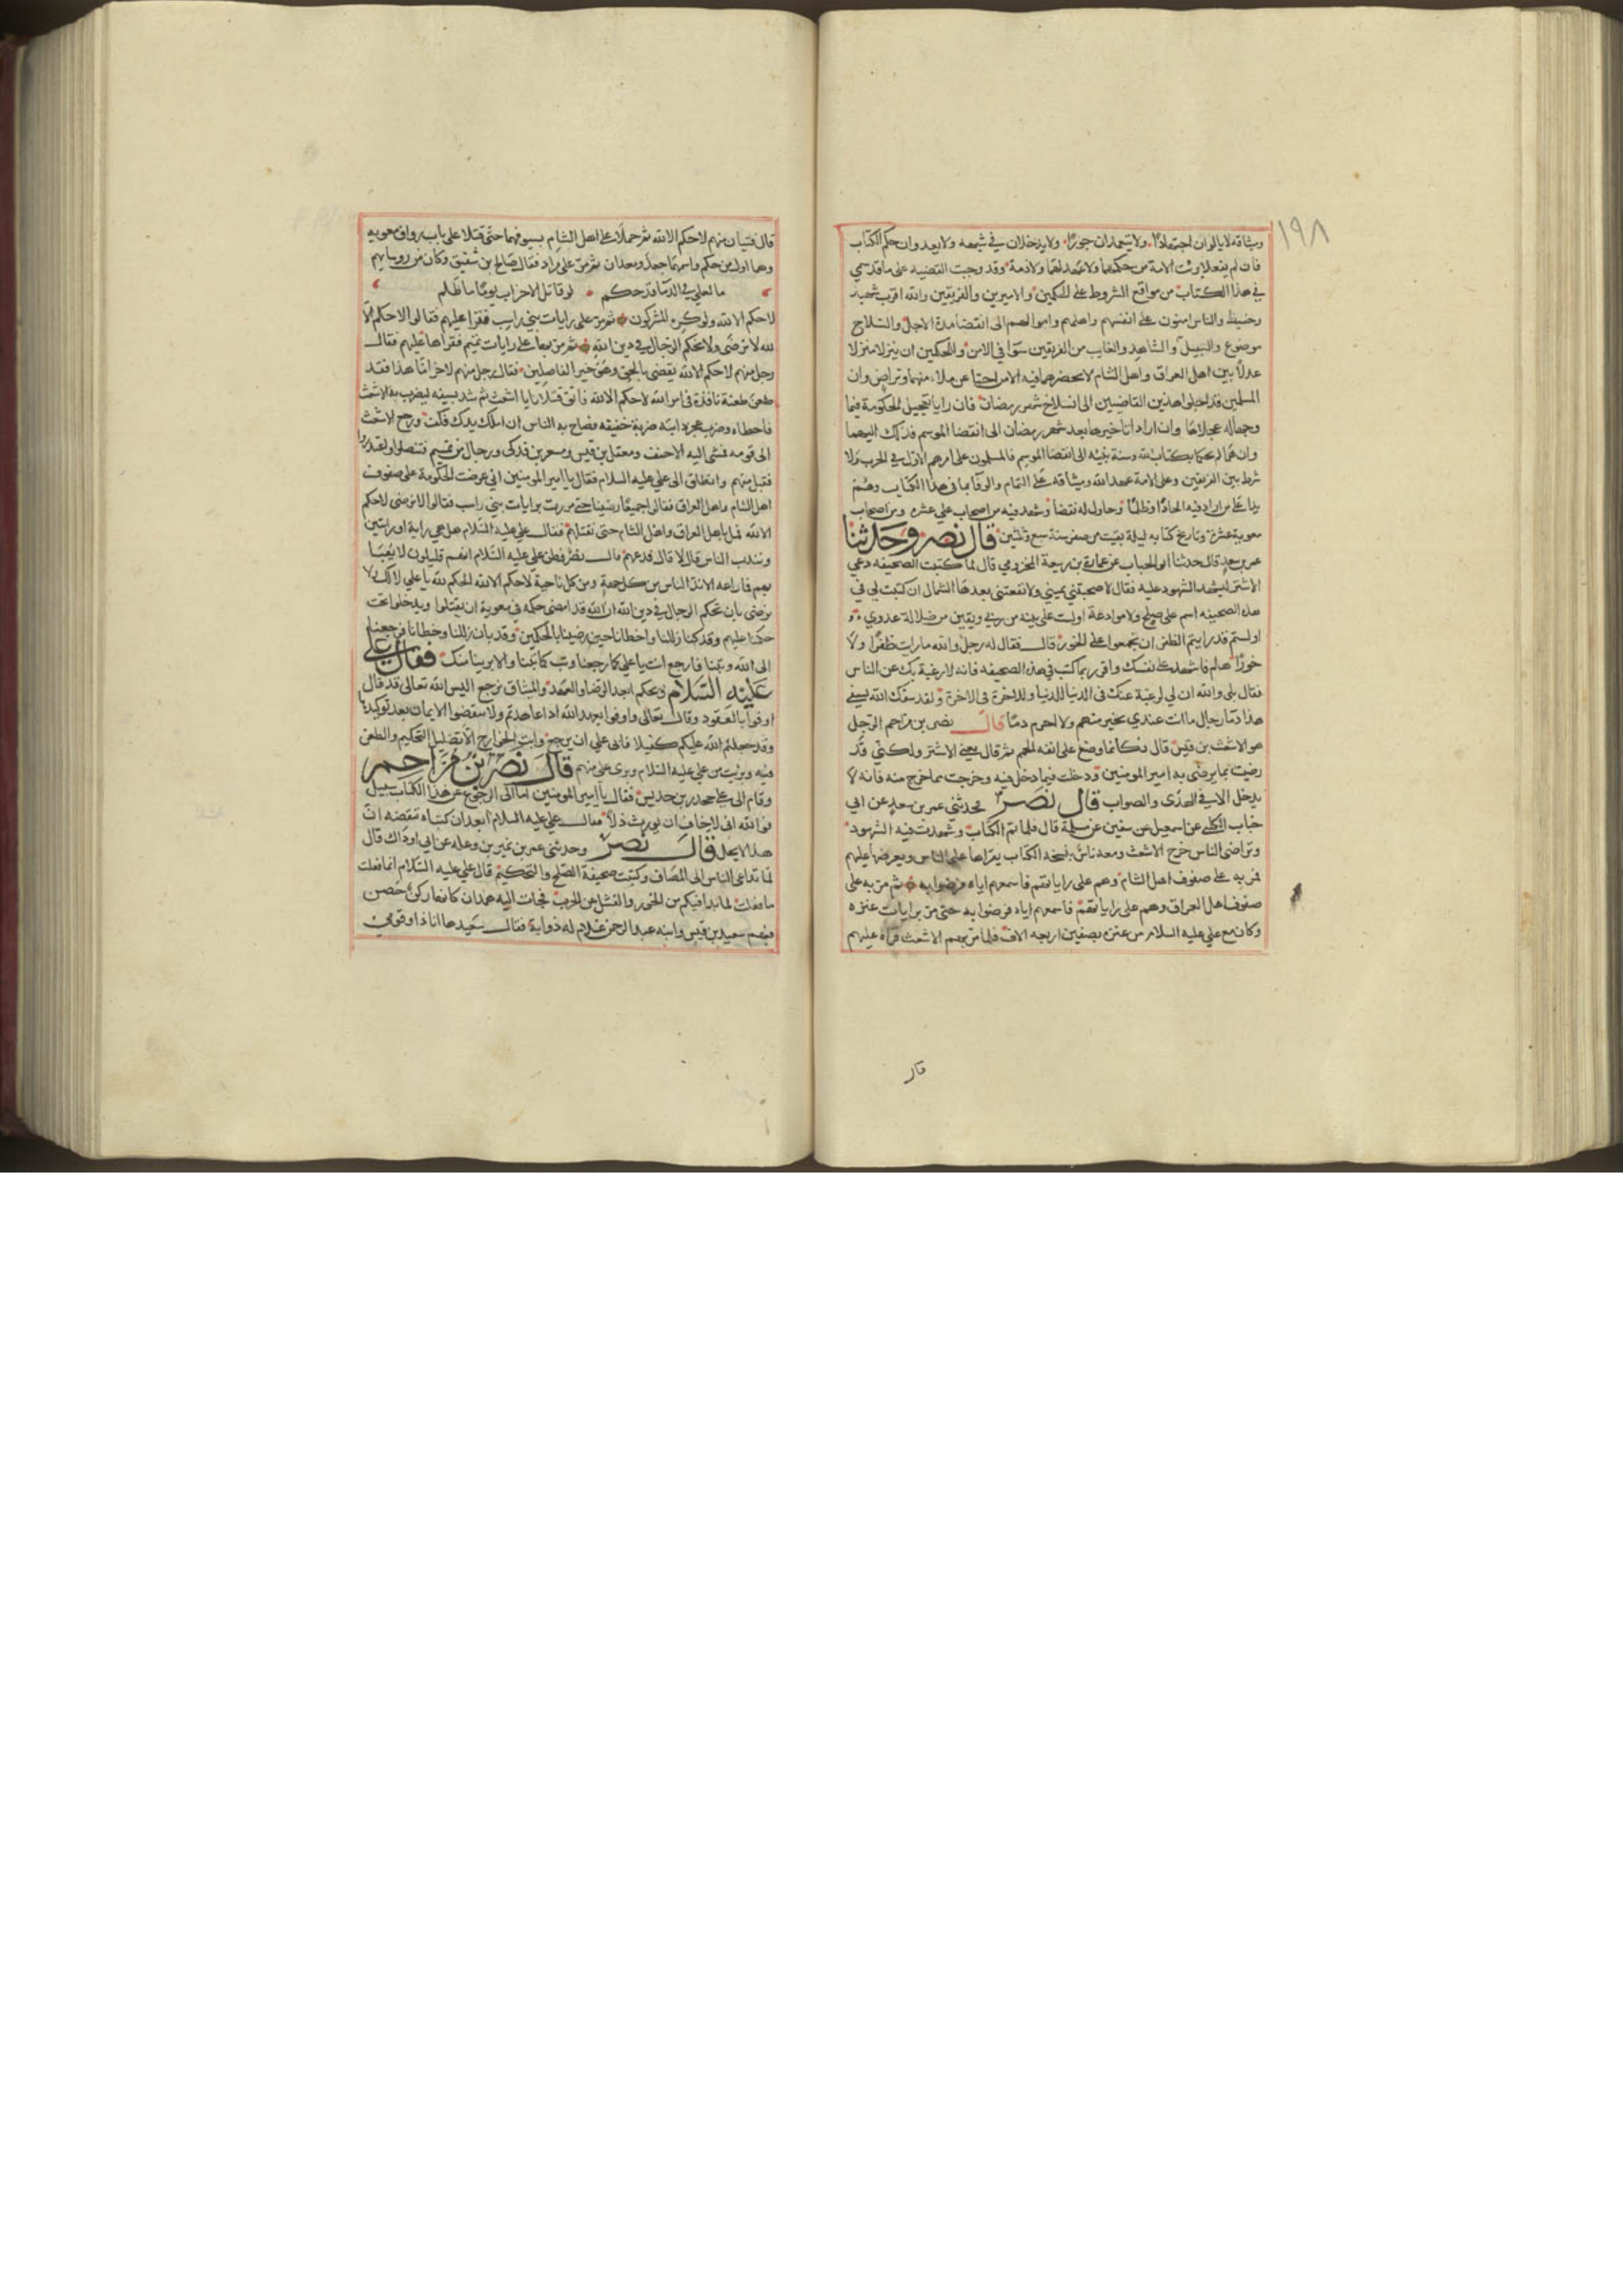 ١٩٨
وميثاقه لا يالوان اجتهادًا ولا يتعمدان جورًا ولا يدخلان في شبهه ولا يعدوان حكم الكتاب
فان لم يفعلا برئت الامة من حكمهما ولا عهد لهما ولا ذمة وقد وجبت القضيه على ما قد سمي
في هذا الكتاب من مواقع الشروط على الحكمين والاميرين والفريقين والله اقرب شهيد
وحفيظ والناس امنون على انفسهم واهلهم واموالهم الى انقضا مدة الاجل والسلاح
موضوع والسبيل آمن والشاهد والغايب من الفريقين سوا في الامن وللحكمين ان ينزلا منزلا
عدلا بين اهل العراق واهل الشام لا يحضرهما فيه الا من احبا عن ملاء منهما وتراض وان
المسلمين قد اجلوا هذين القاضيين الى انسلاخ شهر رمضان فان رايا تعجيل الحكومة فيما
وجها له عجلاها وان ارادا تاخيرها بعد شهر رمضان الى انقضا الموسم فذلك اليهما
وان هما لم يحكما بكتاب الله وسنة نبيه الى انقضا الموسم فالمسلمون على امرهم الاول في الحرب ولا
شرط بين الفريقين وعلى الامة عهد الله وميثاقه على التمام والوفا بما في هذا الكتاب وهم
يد على من اراد فيه الحادًا وظلمًا وحاول له نقضا وشهد فيه من اصحاب علي عشره ومن اصحاب
معوية عشرة وتاريخ كتابه لليلة بقيت من صفر سنة سبع وثلثين قال نصر وحدثنا
عمر بن سعد قال حدثنا ابو الحباب عن عمارة بن ربيعة الخزرمي قال لما كتبت الصحيفه دعي
الاشتر ليشهد الشهود عليه فقال لا صحبتني يميني ولا نفعتني بعدها الشمال ان كتبت لي في
هذه الصحيفه اسم على صلح ولا موادعة اولست على بينه من ربي ويقين من ضلالة عدوي
اولستم قد رايتم الظفر ان لم تجمعوا على الخور قال فقال له رجل والله ما رايت ظفرًا ولا
خورًا هلم فاشهد على نفسك واقرر بما كتب في هذه الصحيفه فانه لا رغبة بك عن الناس
فقال بلى والله ان لي لرغبة عنك في الدنيا للدنيا وللاخرة في الاخرة ولقد سفك الله بسيفي
هذا دما رجال ما انت عندي بخير منهم ولا احرم دمًا قال نصر بن مزاحم الرجل
هو الاشعث بن قيس قال فكانما وضع على انفه الحمم ثم قال يعني الاشتر ولكني قد
رضيت بما يرضى به امير المومنين ودخلت فيما دخل فيه وخرجت مما خرج منه فانه لا
يدخل الا في الهدى والصواب قال نصر فحدثني عمر بن سعد عن ابي
خباب الكلبي عن اسمعيل عن سفين عن سلمة قال فلما تم الكتاب وشهدت فيه الشهود
وتراضى الناس خرج الاشعث ومعه ناس بنسخه الكتاب يقراها على الناس ويعرضها عليهم
فمر به على صفوف اهل الشام وهم على راياتهم فاسمعهم اياه فرضوا به ثم مر به على
صفوف اهل العراق وهم على راياتهم فاسمعهم اياه فرضوا به حتى مر برايات عنزه
وكان مع علي عليه السلام من عنزه بصفين اربعه الاف فلما مر بهم الاشعث قراه عليهم
قال
قال فتيان منهم لا حكم الا لله ثم حملا على اهل الشام بسيوفهما حتى قتلا على باب رواق معويه
وهما اول من حكم واسمهما جعد ومعدان ثم مر على مراد فقال صالح بن شقيق وكان من روسايهم
ما لعلي في الدما قد حكم لو قاتل الاحزاب يومًا ما ظلم
لا حكم الا لله ولو كره المشركون ثم مر على رايات بني راسب فقراها عليهم فقالوا لا حكم الا
لله لا نرضى ولا نحكم الرجال في دين الله ثم مر بها على رايات تميم فقراها عليهم فقال
رجل منهم لا حكم الا لله يقضي بالحق وهو خير الفاصلين فقال رجل منهم لاخر اما هذا فقد
طعن طعنة نافذة في امر الله لا حكم الا لله فاين قتلانا يا اشعث ثم شد بسيفه ليضرب به الاشعث
فاخطاه وضرب عجز دابته ضربة خفيفه فصاح به الناس ان املك يدك فكف ورجع الاشعث
الى قومه فمشى اليه الاحنف ومعقل بن قيس ومسعر بن فدكي ورجال من تميم فتنصلوا واعتذروا
فقبل منهم وانطلق الى علي عليه السلام فقال يا امير المومنين اني عرضت الحكومة على صفوف
اهل الشام واهل العراق فقالوا جميعًا رضينا حتى مررت برايات بني راسب فقالوا لا نرضى لا حكم
الا لله فمل باهل العراق واهل الشام حتى نقتلهم فقال علي عليه السلام هل هي راية او رايتين
ونبذ من الناس قال لا قال فدعهم قال نصر فظن علي عليه السلام انهم قليلون لا يعبا
بهم فما راعه الا ندا الناس من كل جهة ومن كل ناحية لا حكم الا لله الحكم لله يا علي لا لك لا
نرضى بان تحكم الرجال في دين الله ان الله قد امضى حكمه في معوية ان يقتلوا ويدخلوا تحت
حكمنا عليهم وقد كنا زللنا واخطانا حين رضينا بالحكمين وقد بان زللنا وخطانا فرجعنا
الى الله وتبنا فارجع انت يا علي كما رجعنا وتب كما تبنا والا برينا منك فقال علي
عليه السلام ويحكم ابعد الرضا والعهد والميثاق نرجع اليس الله تعالى قد قال
اوفوا بالعقود وقال تعالى واوفوا بعهد الله اذا عاهدتم ولا تنقضوا الايمان بعد توكيدها
وقد جعلتم الله عليكم كفيلا فابى علي ان يرجع وابت الخوارج الا تضليل التحكيم والطعن
فيه وبريت من علي عليه السلام وبرى علي منهم قال نصر بن مزاحم
وقام الى علي محمد بن حديس فقال يا امير المومنين اما الى الرجوع عن هذا الكتاب سبيل
فوالله اني لاخاف ان يورث ذلا فقال علي عليه السلام ابعد ان كتبناه ننقضه ان
هذا لا يحل قال نصر وحدثني عمر بن نمير بن وعله عن ابي اوداك قال
لما تداعى الناس الى المصاف وكتبت صحيفة الصلح والتحكيم قال علي عليه السلام انما فعلت
ما فعلت لما بدا فيكم من الخور والفشل عن الحرب فجات اليه همدان كانها ركن حصن
فيهم سعيد بن قيس وابنه عبد الرحمن غلام له ذوابة فقال سعيد ها انا ذا وقومي